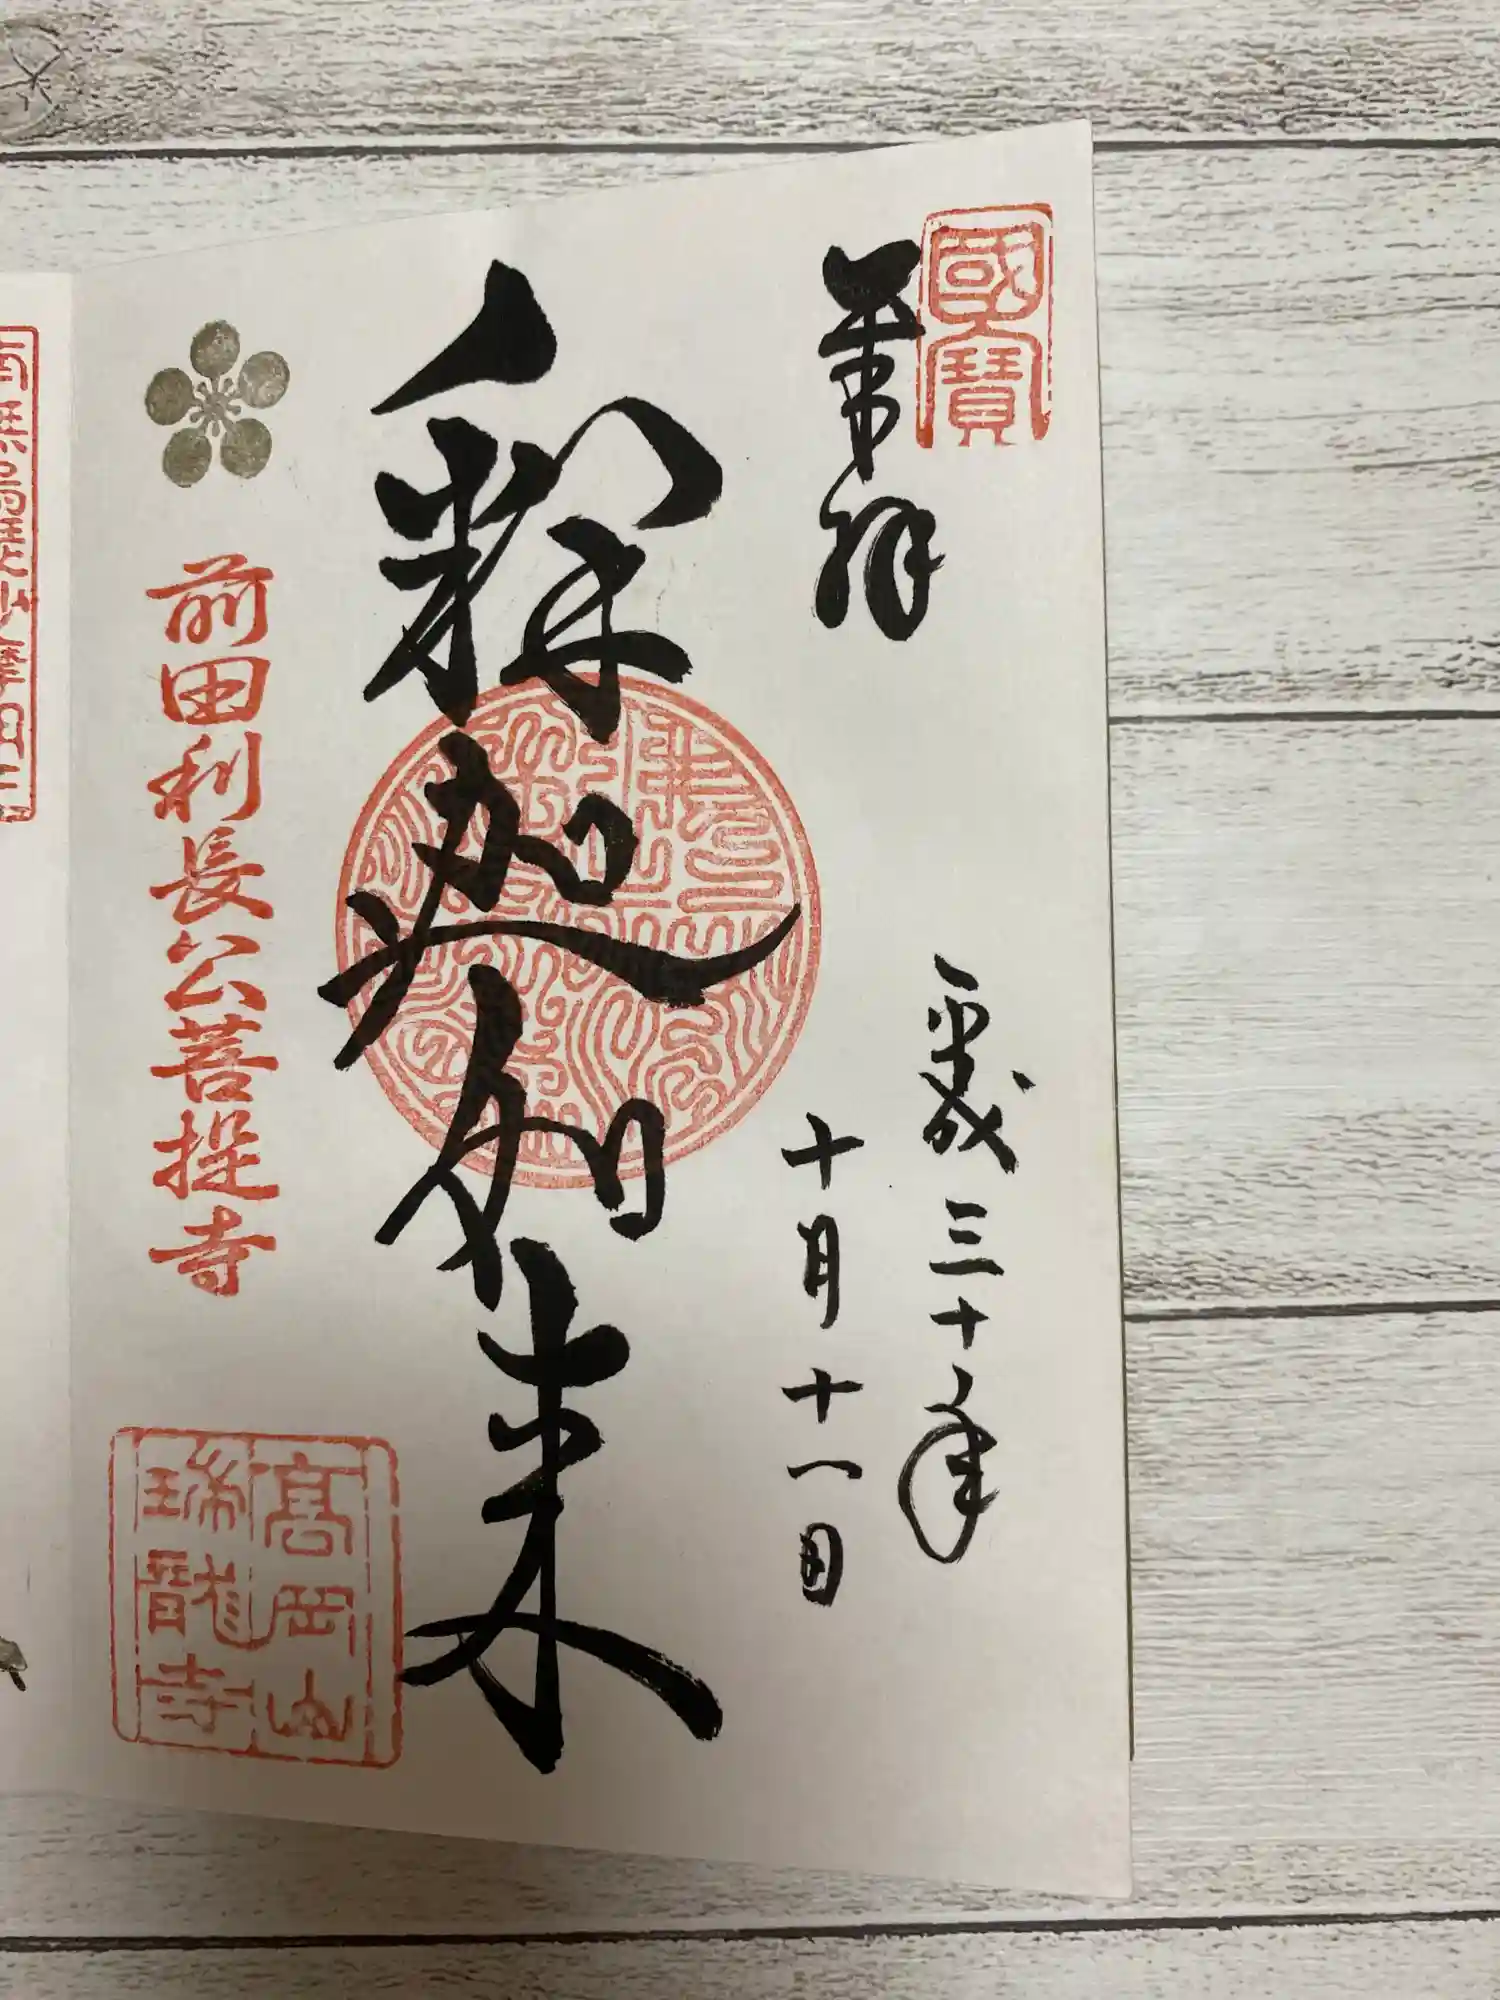 國寳
奉拝
平成三十年
十月十一日
釈迦如来
前田利長公菩提寺
高岡山
瑞龍寺